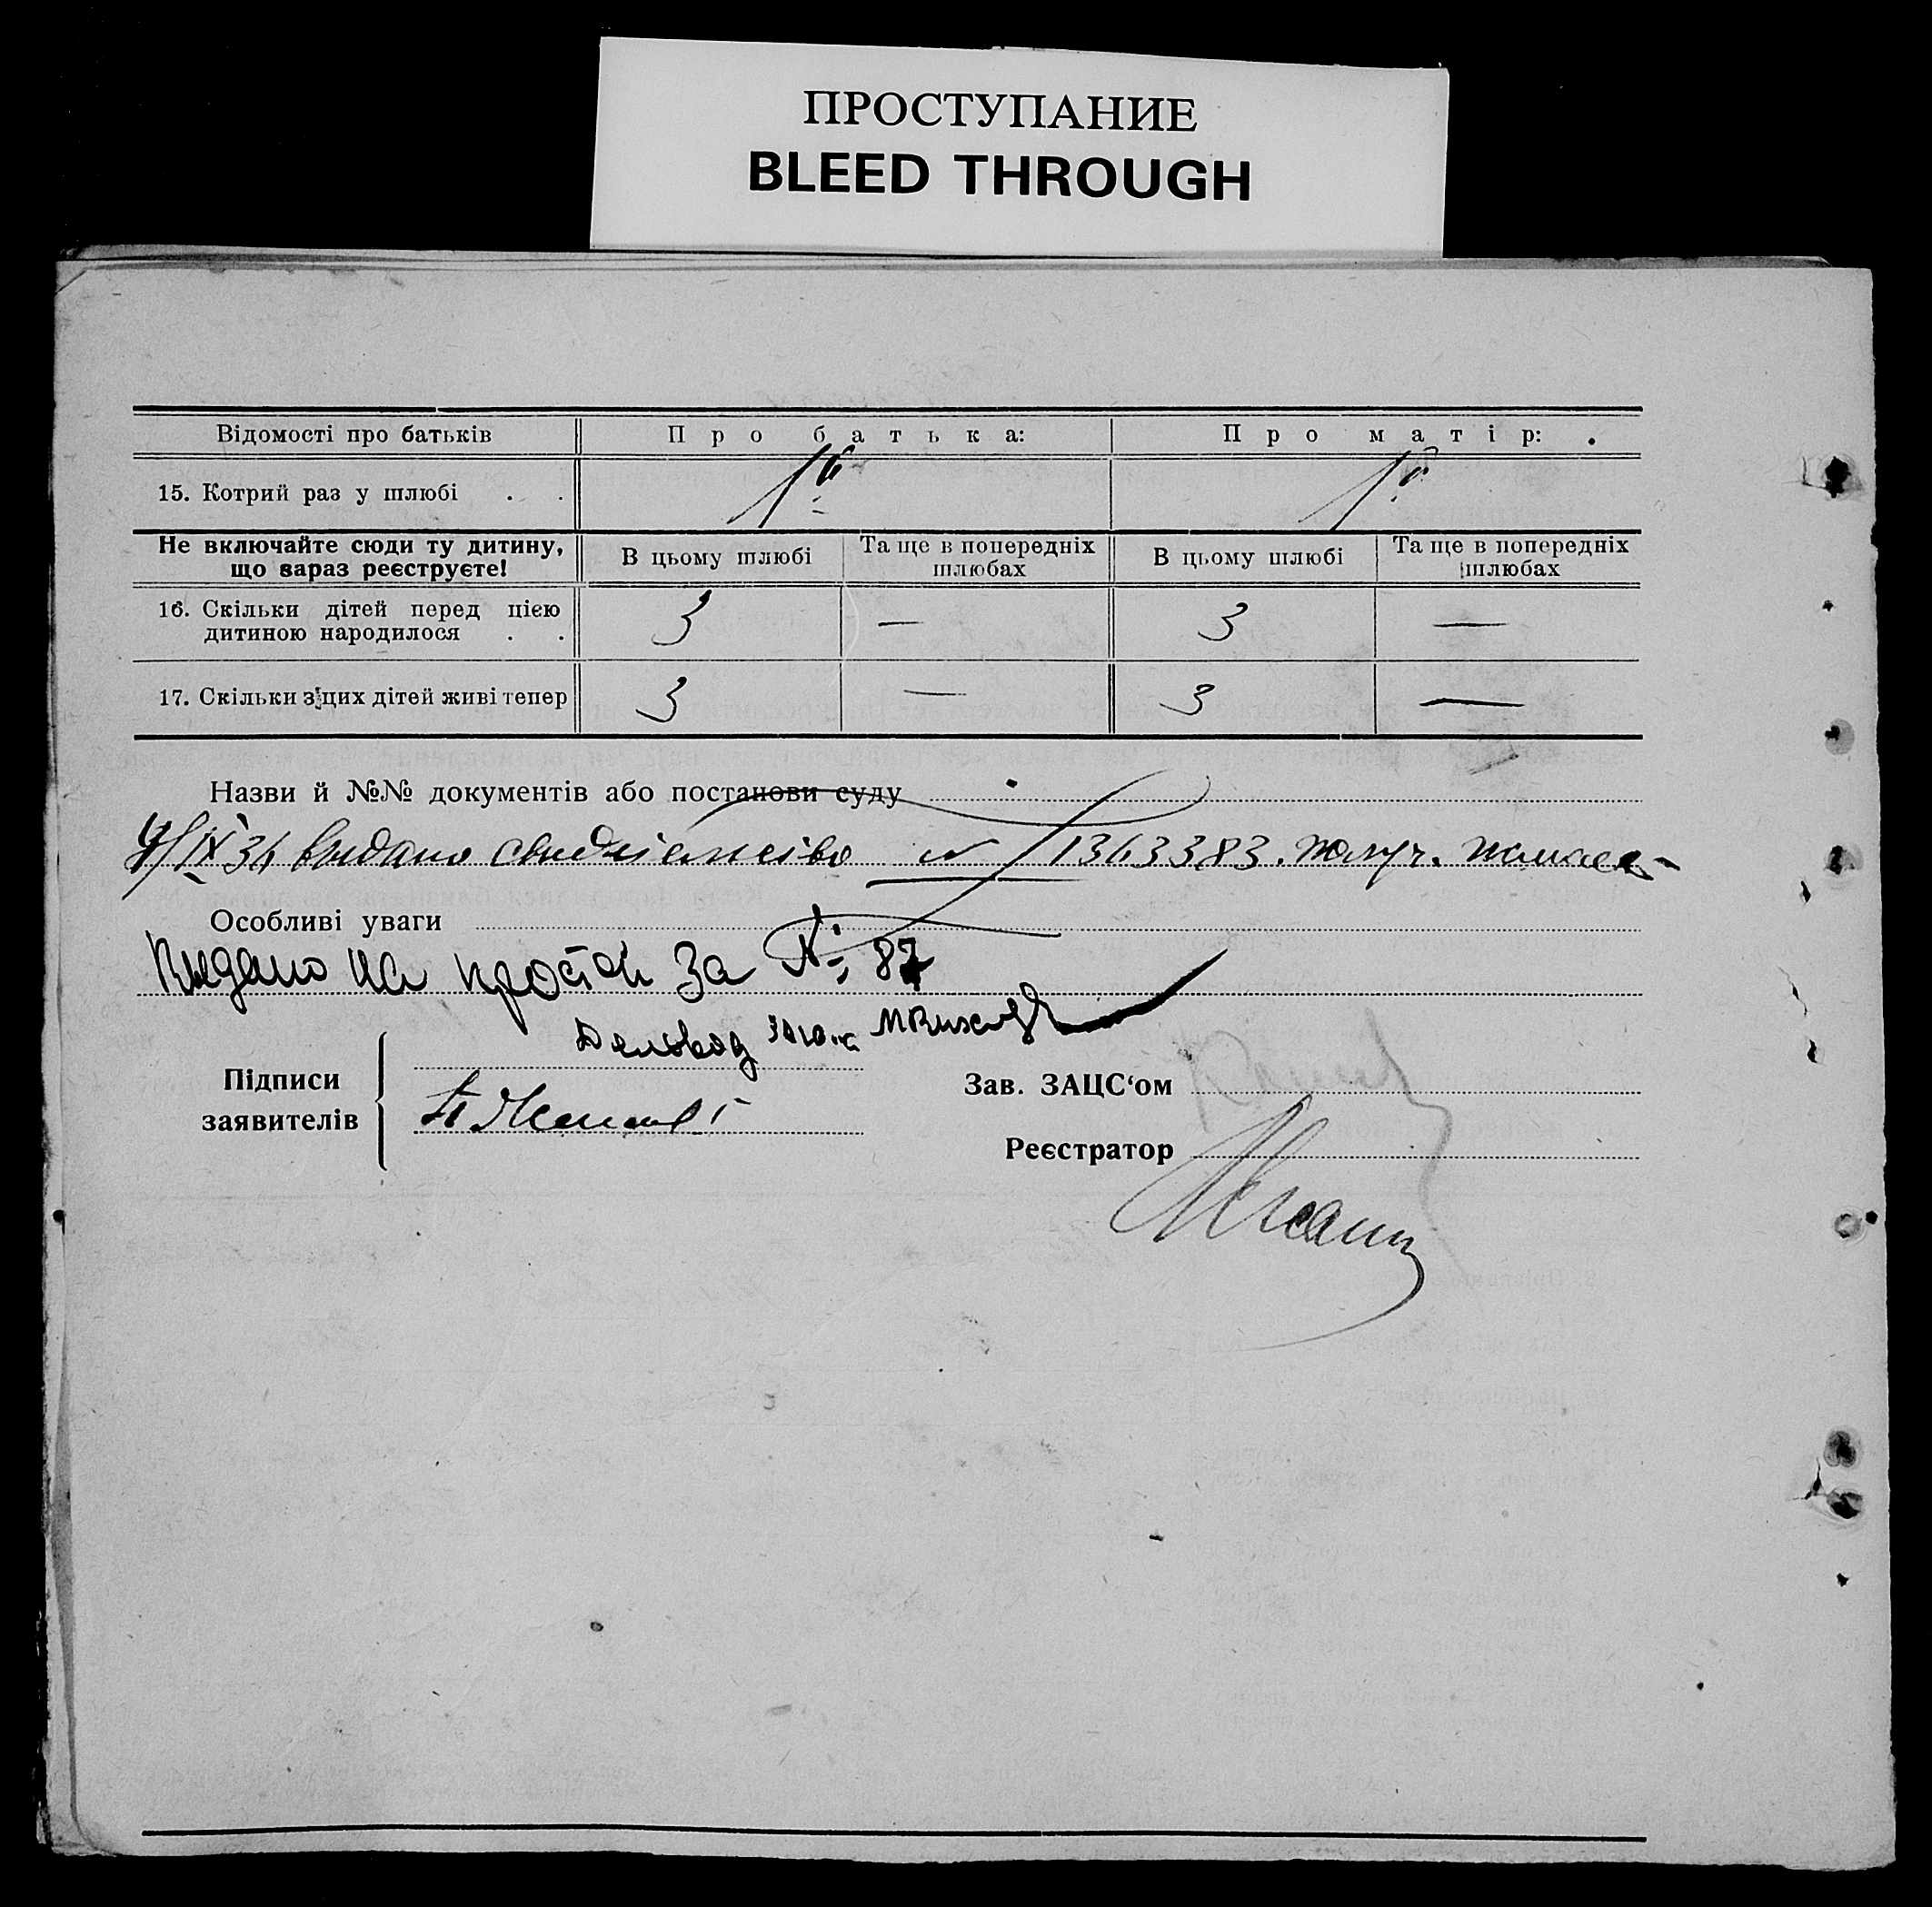 ПРОСТУПАНИЕ
BLEED THROUGH
Відомості про батьків Про батька: Про матір:
15. Котрий раз у шлюбі . . 1й 1й
Не включайте сюди ту дитину, що зараз реєструєте! В цьому шлюбі Та ще в попередніх шлюбах В цьому шлюбі Та ще в попередніх шлюбах
16. Скільки дітей перед цією дитиною народилося . . 3 — 3 —
17. Скільки з цих дітей живі тепер 3 — 3 —
Назви й №№ документів або постанови суду
IX 34 выдано № 1363383.
Особливі уваги
Выдано на простой за № 87
Деловод
Підписи заявителів
Зав. ЗАЦС‘ом
Реєстратор